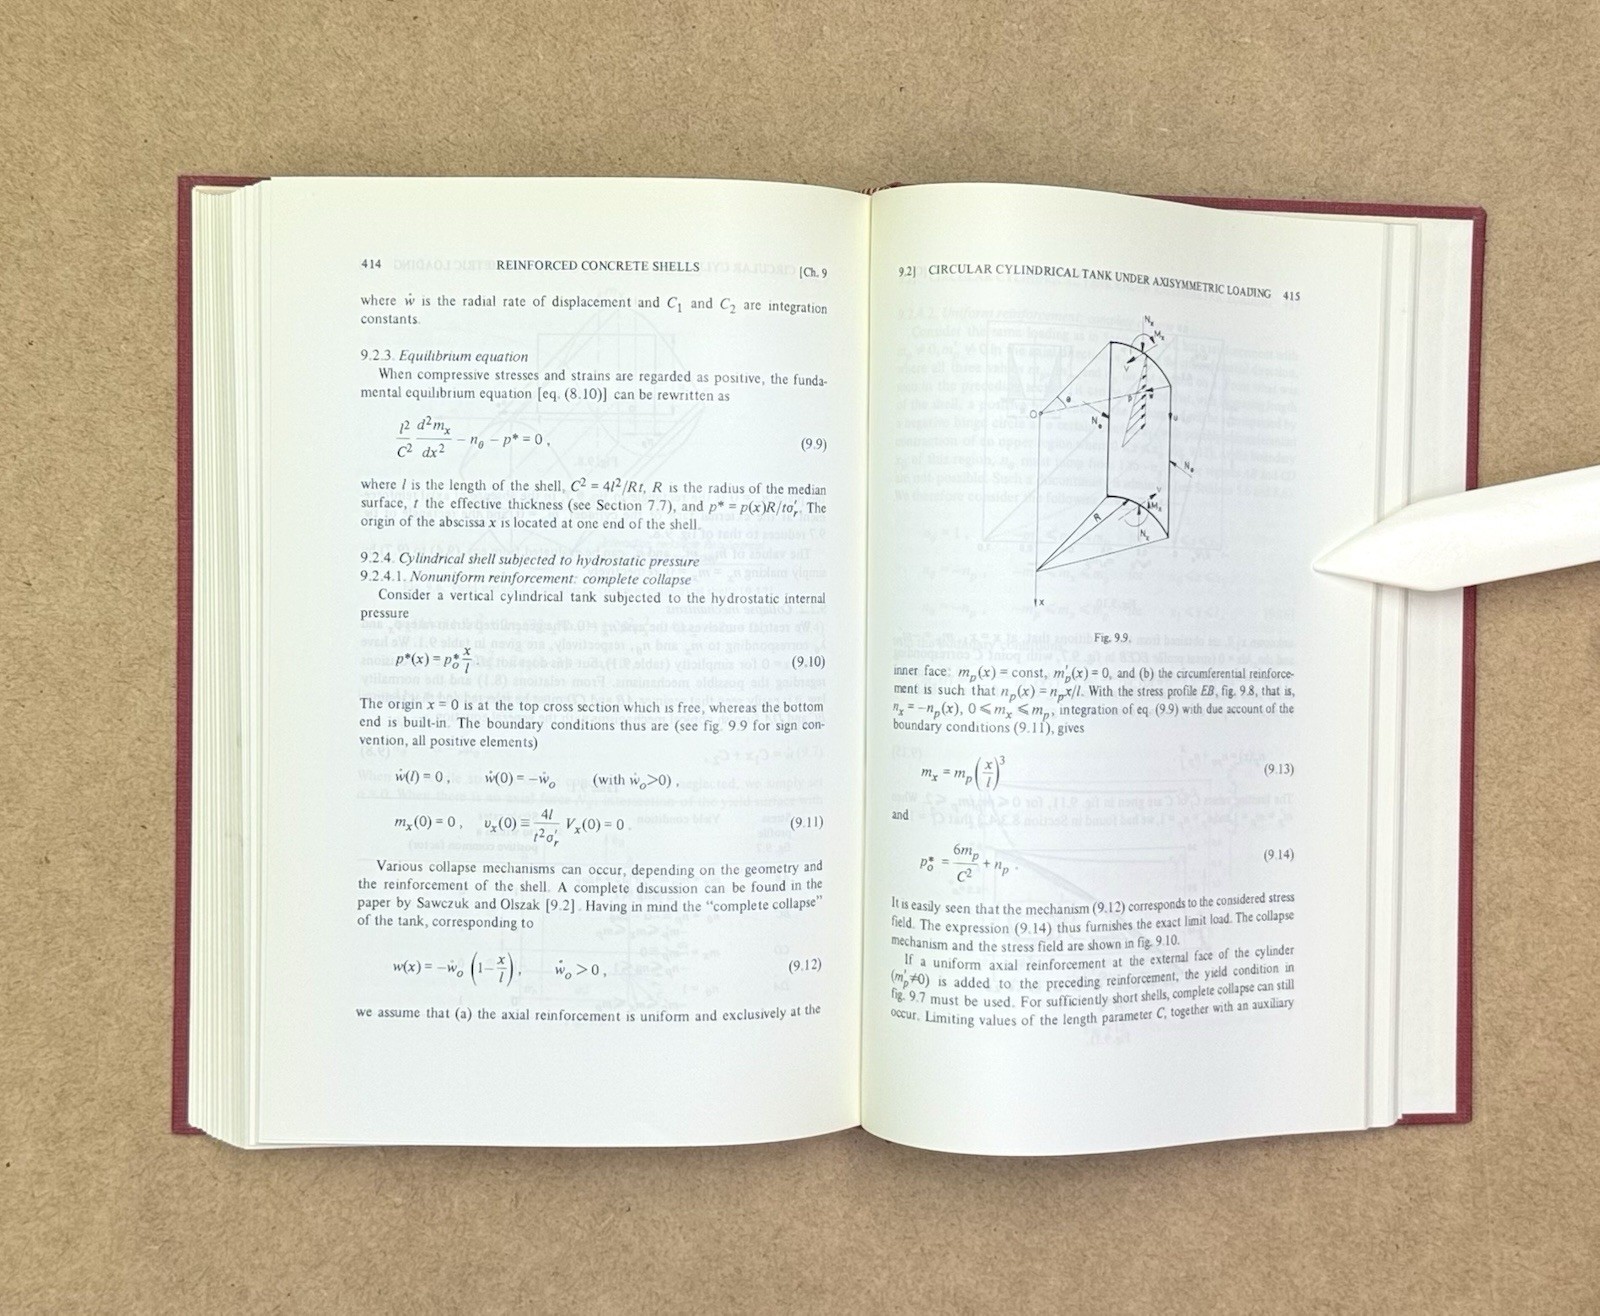 414 REINFORCED CONCRETE SHELLS [Ch. 9
where ẇ is the radial rate of displacement and C₁ and C₂ are integration
constants.
9.2.3. Equilibrium equation
When compressive stresses and strains are regarded as positive, the funda-
mental equilibrium equation [eq. (8.10)] can be rewritten as
l²/C² d²mₓ/dx² − n_θ − p* = 0 , (9.9)
where l is the length of the shell, C² = 4l²/Rt, R is the radius of the median
surface, t the effective thickness (see Section 7.7), and p* = p(x)R/tσ′ᵣ. The
origin of the abscissa x is located at one end of the shell.
9.2.4. Cylindrical shell subjected to hydrostatic pressure
9.2.4.1. Nonuniform reinforcement: complete collapse
Consider a vertical cylindrical tank subjected to the hydrostatic internal
pressure
p*(x) = p*₀ x/l . (9.10)
The origin x = 0 is at the top cross section which is free, whereas the bottom
end is built-in. The boundary conditions thus are (see fig. 9.9 for sign con-
vention, all positive elements)
ẇ(l) = 0 , ẇ(0) = −ẇ₀ (with ẇ₀>0) ,
mₓ(0) = 0 , υₓ(0) ≡ 4l/t²σ′ᵣ Vₓ(0) = 0 . (9.11)
Various collapse mechanisms can occur, depending on the geometry and
the reinforcement of the shell. A complete discussion can be found in the
paper by Sawczuk and Olszak [9.2] . Having in mind the “complete collapse”
of the tank, corresponding to
w(x) = −ẇ₀ (1−x/l) , ẇ₀ > 0 , (9.12)
we assume that (a) the axial reinforcement is uniform and exclusively at the
9.2] CIRCULAR CYLINDRICAL TANK UNDER AXISYMMETRIC LOADING 415
Nₓ
Mₓ
V
O
θ
p
N_θ
u
N_θ
V
R
Mₓ
Nₓ
x
Fig. 9.9.
inner face: m_p(x) = const, m′_p(x) = 0, and (b) the circumferential reinforce-
ment is such that n_p(x) = n_p x/l. With the stress profile EB, fig. 9.8, that is,
nₓ = −n_p(x), 0 ⩽ mₓ ⩽ m_p, integration of eq. (9.9) with due account of the
boundary conditions (9.11), gives
mₓ = m_p (x/l)³ (9.13)
and
p*₀ = 6m_p/C² + n_p . (9.14)
It is easily seen that the mechanism (9.12) corresponds to the considered stress
field. The expression (9.14) thus furnishes the exact limit load. The collapse
mechanism and the stress field are shown in fig. 9.10.
If a uniform axial reinforcement at the external face of the cylinder
(m′_p≠0) is added to the preceding reinforcement, the yield condition in
fig. 9.7 must be used. For sufficiently short shells, complete collapse can still
occur. Limiting values of the length parameter C, together with an auxiliary